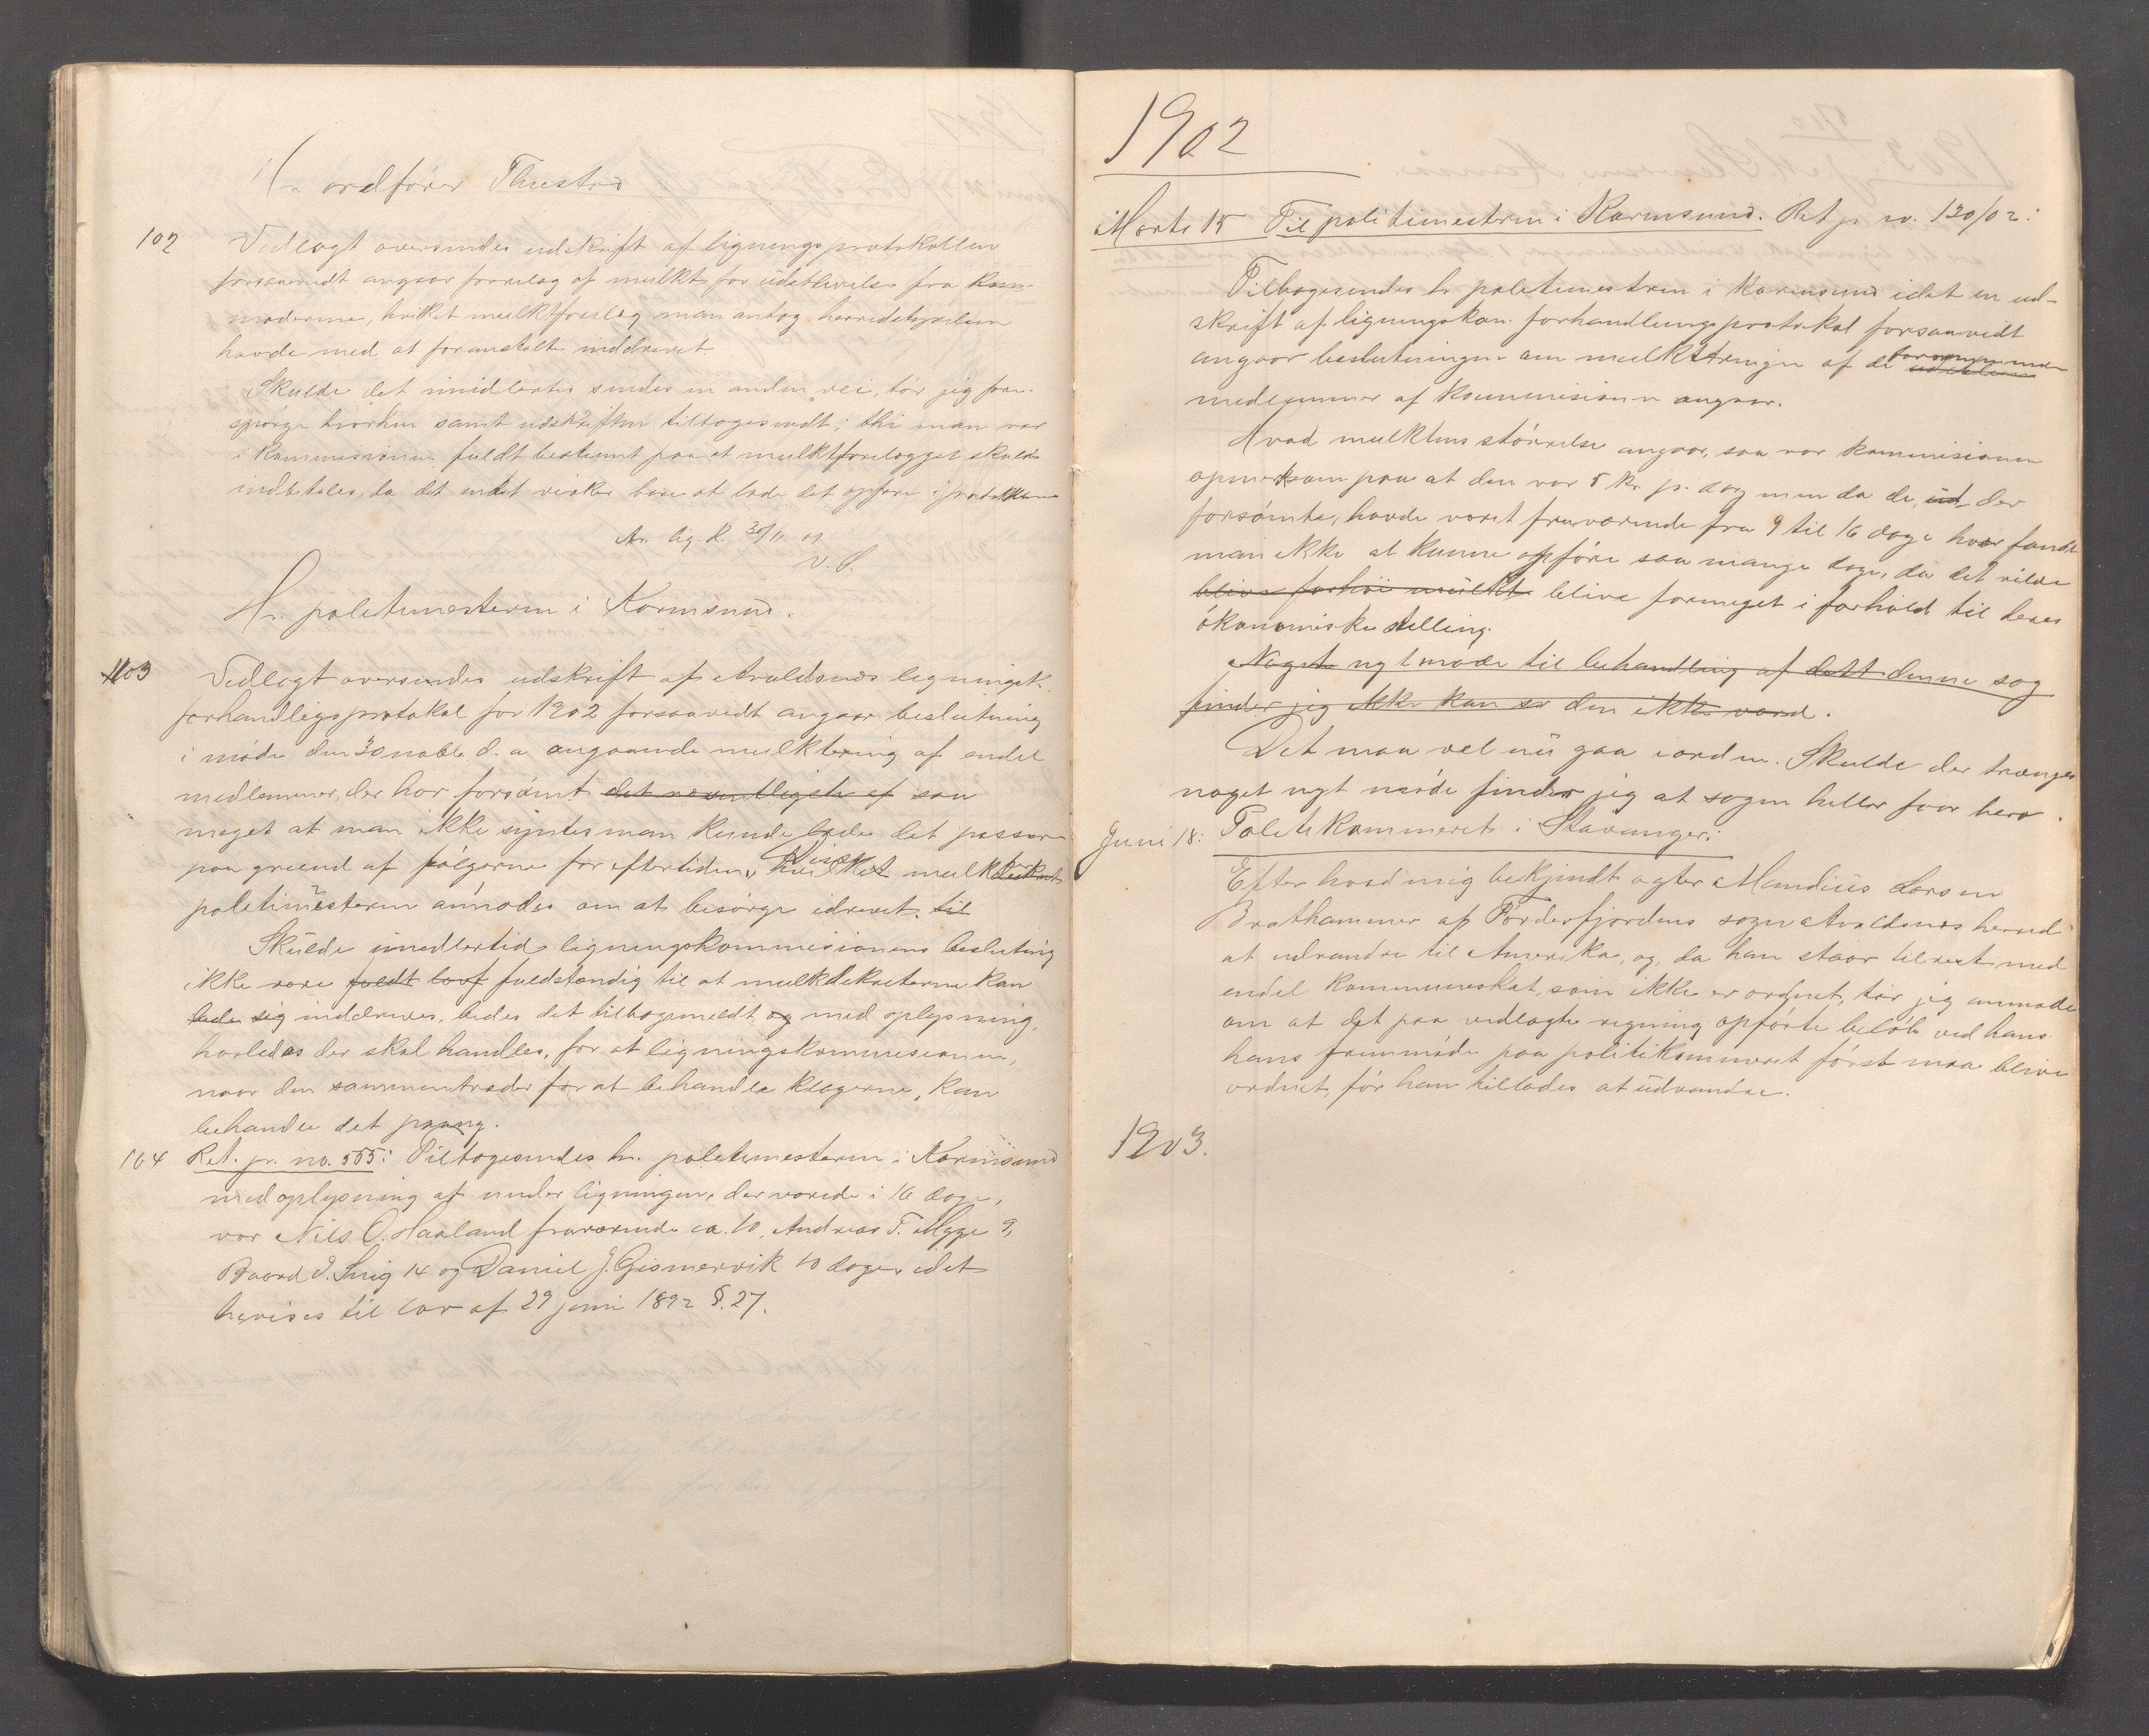 Hr ordfører Thuestad
102 Vedlagt oversendes udskrift af ligningsprotokollen
forsaavidt angaar forelæg af mulkt for udeblivelse fra kom-
møderne, hvilket mulktforelæg man antog herredstyrelsen
havde med at foranstalte inddrevet
Skulde det imidlertid sendes en anden vei, tør jeg fore-
spørge hvorhen samt udskriften tilbagesendt; thi man var
i kommissionen fuldt bestemt paa at mulktforelægget skulde
indbetales, da det intet virker bare at lade det opføre i protokollen
Av. lig. k. 30/11 01
V. S.
Hr. politimesteren i Karmsund.
103 Vedlagt oversendes udskrift af Avaldsnes ligningsk.
forhandligsprotokol for 1902 forsaavidt angaar beslutning
i møde den 30 novbr d. a. angaaende mulktering af endel
medlemmer, der har forsømt det væsentligste af saa
meget at man ikke syntes man kunde lade det passere
paa grund af følgerne for eftertiden, hvilket Disse mulkter
politimesteren anmodes om at besørge idrevet. til
Skulde imidlertid ligningskommisionens beslutnig
ikke være fuldt lovf fuldstændig til at mulktdekreterne kan
lade sig inddrives, bedes det tilbagemeldt og med oplysning,
hvorledes der skal handles, for at ligningskommissionen,
naar den sammentræder for at behandle klagerne, kan
behandle det paany.
104 Ret. pr. no. 555: Tilbagesendes hr. politimesteren i Karmsund
med oplysning at under ligningen, der varede i 16 dage,
var Nils O. Haaland fraværende ca. 10, Andreas T. Mygge 9,
Baard J. Snig 14 og Daniel J. Gismervik 10 dage, idet
henvises til lov af 29 juni 1892 §. 27.
1902
Marts 15 Til politimestren i Karmsund. Ret p. no. 130/02:
Tilbagesendes hr politimestren i Karmsund idet en ud-
skrift af ligningskom. forhandlingsprotokol forsaavidt
angaar beslutningen om mulktering af de udeblevne forsømmende
medlemmer af kommisionen angaar.
Hvad mulktens størrelse angaar, saa var kommisionen
opmerksom paa at den var 5 kr p. dag men da de, ud der
forsømte, havde været fraværende fra 9 til 16 dage hver fandt
man ikke at kunne opføre saa mange dage, da det vilde
blive forhøi mulkt blive formeget i forhold til deres
økonomiske stilling.
Noget nyt møde til behandling af dett denne sag
finder jeg ikke kan se den ikke værd.
Det maa vel nu gaa i orden. Skulde der trænges
noget nyt møde finder jeg at sagen heller faar bero.
Juni 18: Politikammeret i Stavanger:
Efter hvad mig bekjendt agter Mandius Larsen
Brathammer af Førdesfjordens sogn Avaldsnes herred
at udvandre til Amerika, og, da han staar tilrest med
endel kommuneskat, som ikke er ordnet, tør jeg anmode
om at det paa vedlagte regning opførte beløb ved hans
hans fremmøde paa politikammeret først maa blive
ordnet, før han tillades at udvandre.
1903.